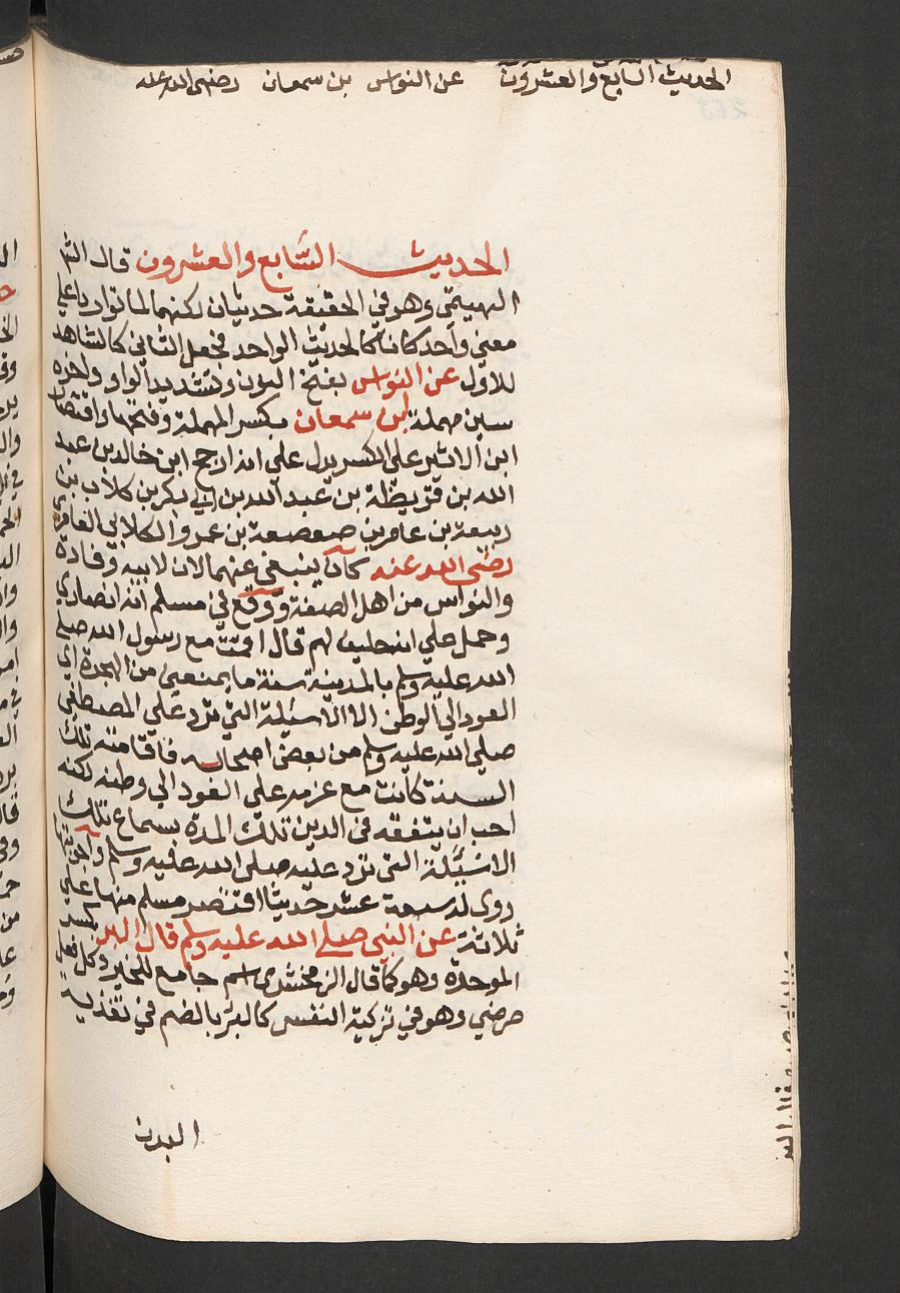 الحديث السابع والعشرون عن النواس بن سمعان رضي الله عنه
الحديث السابع والعشرون قال الشه
الهيتمي وهو في الحقيقة حديثان لكنهما لما تواردا علي
معني واحد كانا كالحديث الواحد فجعل الثاني كالشاهد
للاول عن النواس بفتح النون وتشديد الواو واخره
سين مهملة ابن سمعان بكسر المهملة وفتحها واقتصار
ابن الاثير علي الكسر يدل علي انه ارجح ابن خالد بن عبد
الله بن قريظة بن عبد الله بن ابي بكر بن كلاب بن
ربيعة بن عامر بن صعصعة بن عمرو الكلابي العامري
رضي الله عنه كان ينبغي عنهما لان لابيه وفادة
والنواس من اهل الصفة ووقع في مسلم انه انصاري
وحمل علي انه حليف لهم قال اقمت مع رسول الله صلي
الله عليه وسلم بالمدينة سنة ما يمنعني من الهجرة اي
العود الي الوطن الا الاسئلة التي ترد علي المصطفي
صلي الله عليه وسلم من بعض اصحابه فاقامته تلك
السنة كانت مع عزمه علي العود الي وطنه لكنه
احب ان يتفقه في الدين تلك المدة بسماع تلك
الاسئلة التي ترد عليه صلي الله عليه وسلم واجوبتها
روي له سبعة عشر حديثا اقتصر مسلم منها علي
ثلاثة عن النبي صلي الله عليه وسلم قال البر بكسر
الموحدة وهو كما قال الزمخشري اسم جامع للخير وكل فعل
مرضي وهو في تزكية النفس كالبر بالضم في تغذية
البدن